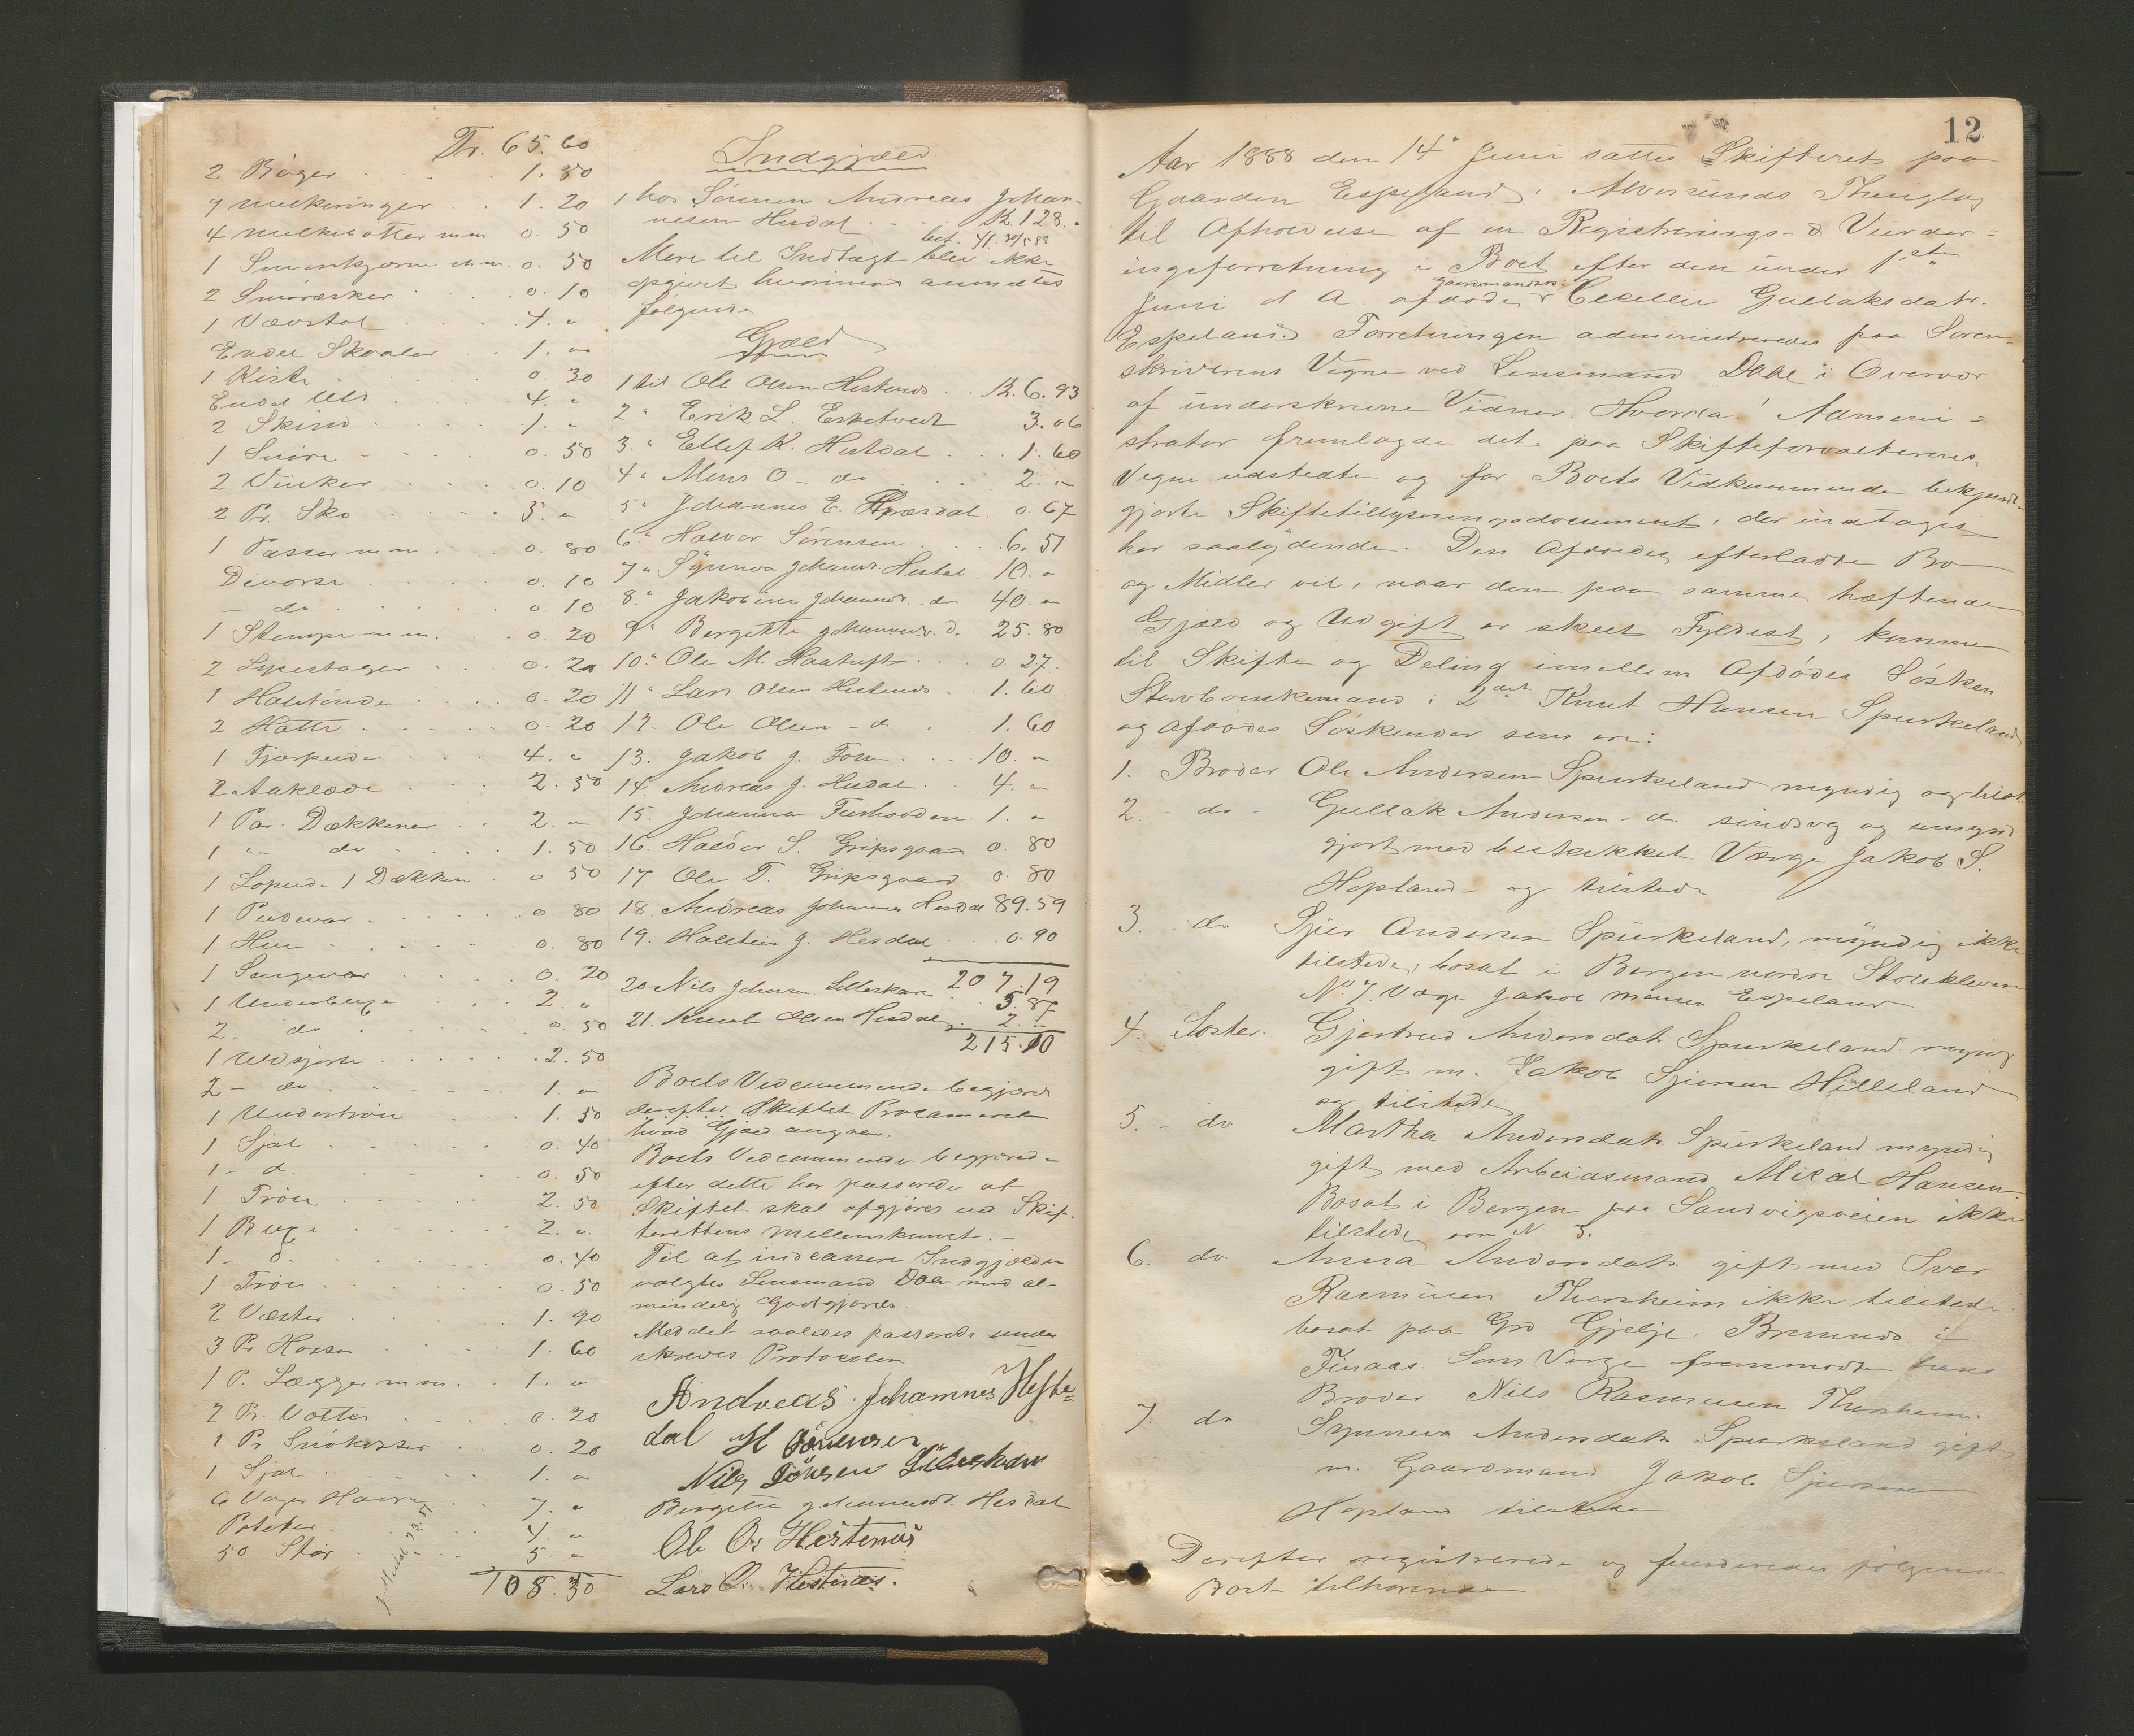 Tr. 65.60
2 Bøger 1.80
9 Melkeringer 1.20
4 Melkebøtter m.m. 0.50
1 Smørkjærne m.m. 0.50
2 Smøræsker 0.10
1 Vævstol 4. "
Endel Skaaler 1. "
1 Kiste 0.30
Endel Uld 4. "
2 Skind 1. "
1 Snøre 0.50
2 0.10
2 Pr. Sko 3. "
1 Passer m.m. 0.80
Diverse 0.10
- do 0.10
1 Stampe m.m. 0.20
2 Lysestager 0.20
1 Halvtønde 0.20
2 Hatte 0.20
1 4. "
2 Aaklæde 2.50
1 Par. Dækkener 2. "
1 " do 1.50
1 1 Dækken 0 50
1 Pudevar 0.80
1 Hue 0.80
1 Sengevar 0.20
1 Underbuxe 2. "
2 - do 0.50
1 Uldskjorte 2.50
2 - do 1. "
1 Undertrøie 1.50
1 Sjal 0.40
1 - d. 0.50
1 Trøie 2.50
1 Buxe 2. "
1 - d. 0.40
1 Trøie 0.50
2 Væster 1.90
3 Pr Hoser 1.60
1 P. Lægger m.m. 1. "
2 Pr. Votter 0.20
1 Pr 0.20
1 Sjal 1. "
6 Voger Havre 7. "
Poteter 4. "
50 Stør 5. "
108.30
Indgjæld
1 hos Sørensen Andreas Johan-
nesen Hisdal K. 128. "
Mere til Indtægt blev ikke
opgivet hvorimod anmeldtes
følgende
Gjæld
1 til Ole Olsen Hestenes K. 6.93
2 " Erik L. Esketvedt 3.06
3. " Ellef K. Hisdal 1.60
4 " Mons O - do 2. "
5 " Johannes E. 0.67
6 " Halvor Sørensen 6.51
7 " Synneva Johansd. Hisdal 10. "
8. " Jakobine Johannesd. - do 40. "
9 " Bergitte Johannesd. d. 25.80
10. " Ole M. 0.27.
11 " Lars Olsen Hestenes 1.60
12. Ole Olsen - d 1.60
13. Jakob J. 10. "
14. Andreas J. Hisdal 4. "
15. Johanna 1. "
16. Haldor S. Gripsgaard 0.80
17. Ole T. Gripsgaard 0.80
18. Andreas Johannes Hisdal 89.59
19. Halsten J. Hesdal 0.90
207.19
20 Nils Johnsen Lilleskare 5.87
21. Knut Olsen Hesdal 2. "
215.10
Boets Vedkommende begjæred
derefter Skiftet Proclameret
hvad Gjæld angaar.
Boets Vedkommende begjærede
efter dette her passerede at
Skiftet skal afgjøres ved Skif-
terettens mellemkomst. -
Til at indcassere Indgjælden
valgtes Lensmand Dahl mod al-
mindelig Godtgjørelse
Med det saaledes passerede under
skreves Protocolen
Andreas Johannes Heste=
dal H Sörensen
Nils Jönsen Lilleskare
Bergitta Johannesd. Hesdal
Ole O. Hestenes
Lars O. Hestenes.
12
Aar 1888 den 14de Juni sattes Skifteret paa
Gaarden Espeland i Alversunds Thinglag
til Afholdelse af en Registrerings- & Vurder=
ingsforretning i Boet efter den under 1ste
Juni d A afdøde Cecilie Gullaksdatr.
Espeland. Forretningen administreredes paa Soren-
skriverens Vegne ved Lensmand Dahl i Overvær
af underskrevne Vidner. Hvorda! Admini=
strator fremlagde det paa Skifteforvalterens
Vegne udstedte og for Boets Vidkommende bekjendt-
gjorte Skiftetillysningsdocument, der indtages
her saalydende. Den Afdødes efterladte Bo
og Midler vil, naar den paa samme heftende
Gjæld og Udgift er skeet Fyldest, komme
til Skifte og Deling imellem Afdødes Søsken
Stervboenkemand i 2det Knut Hansen Spurkeland
og Afdødes Søskender som ere:
1. Broder Ole Andersen Spurkeland myndig og tilst.
2. - do - Gullak Andersen - d. sindsvg og umynd
gjort med beskikket Værge Jakob S.
Hopland og tilstede
3. do Sjur Andersen Spurkeland, myndig ikke
tilstede, bosat i Bergen nordre
No 7. Værge Jakob Monsen Espeland
4. Søster. Gjertrud Andersdatr. Spurkeland myndig
gift m. Jakob Sjursen Hilleland
og tilstede
5. - do Martha Andersdatr. Spurkeland myndig
gift med Arbeidsmand Mikal Hansen
Bosat i Bergen paa Sandvigsveien ikke
tilstede som N. 3.
6. do Anna Andersdatr. gift med Iver
Rasmusen Thorsheim ikke tilstede
bosat paa Grd Gjelje, Bremnes i
Finaas. Som Verge fremmødte hans
Broder Nils Rasmusen Thorsheim.
7. do Synneva Andersdatr. Spurkeland gift
m. Gaardmand Jakob Sjursen
Hopland tilstede
Derefter registreredes og vurderedes følgende
Boet tilhørende